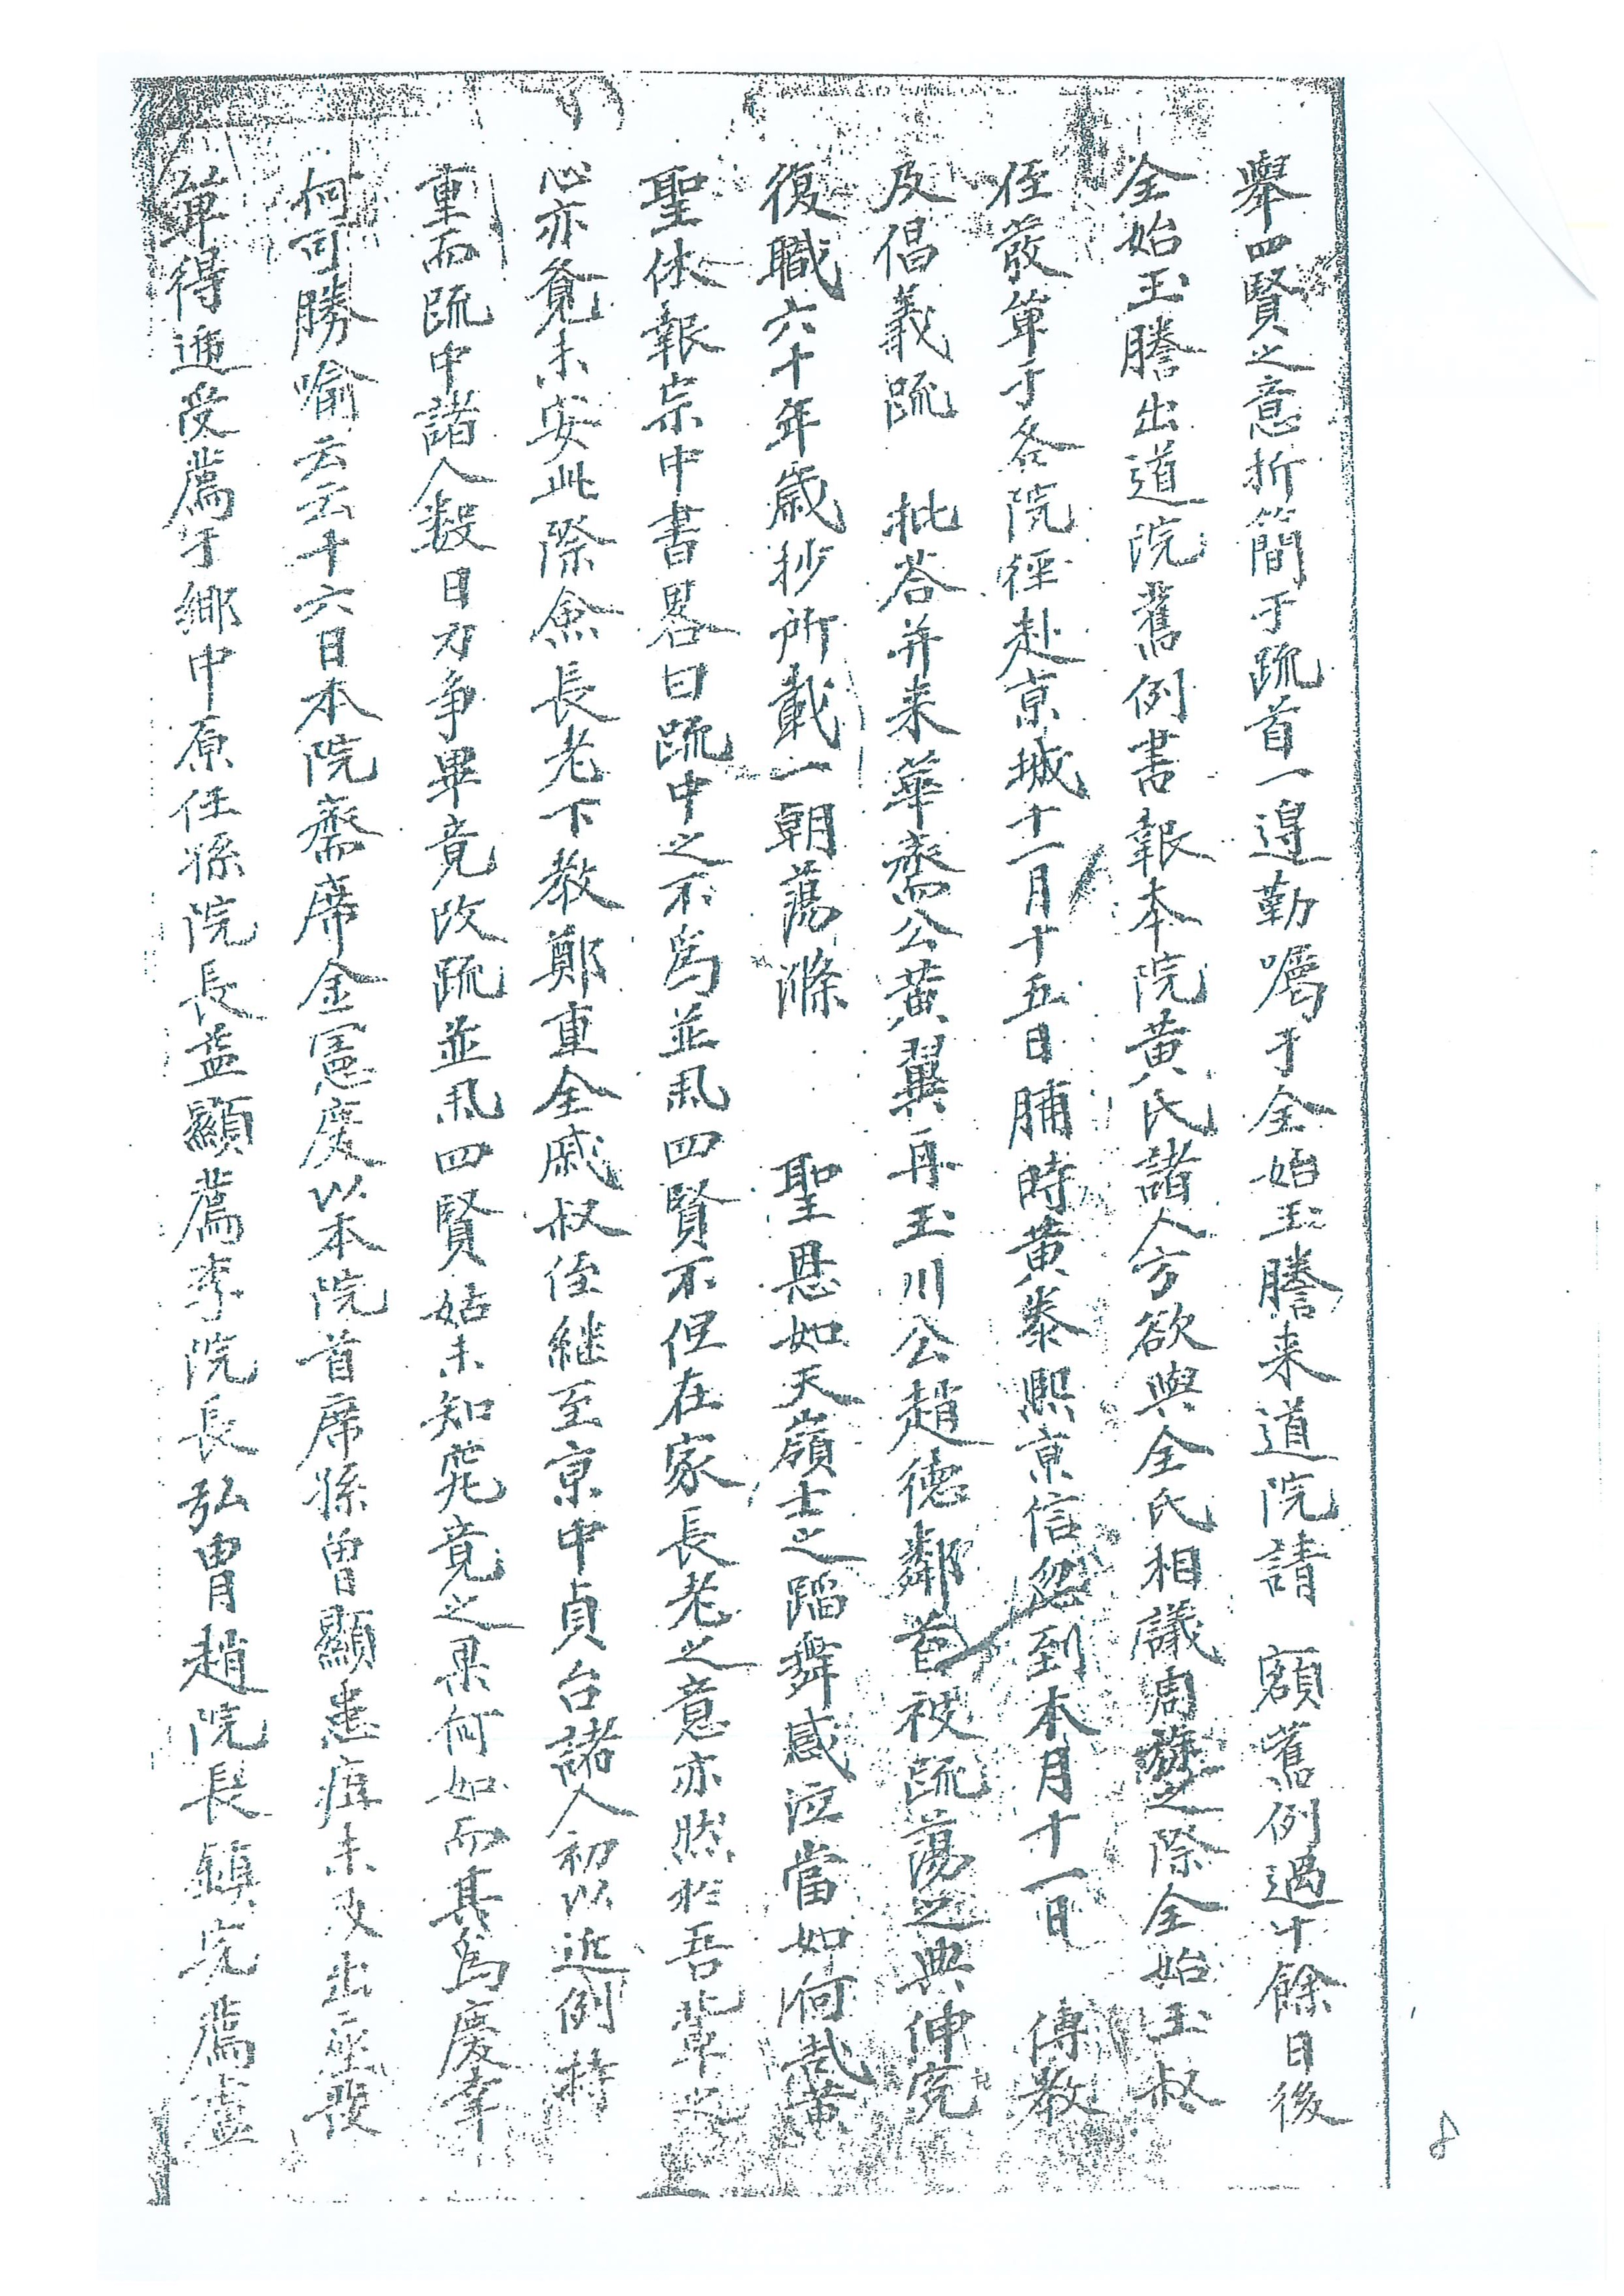 擧四賢之意折簡于疏首一邊勤囑于全始玉謄来道院請 額舊例過十餘日後
全始玉謄出道院舊例書報本院黄氏諸人方欲與全氏相議周旋之際全始玉叔
侄發單于各院徑赴京城十一月十五日晡時黄泰熙京信忽到本月十一日 傳教
及倡義疏 批答并来華齋公黄翼再玉川公趙德鄰首被疏蕩之典伸寃
復職六十年歲抄所載一朝蕩滌 聖恩如天嶺士之蹈舞感泣當如何哉黄
聖休報宗中書畧曰疏中之不爲並擧四賢不但在家長老之意亦然於吾輩之
心亦覺未安此際僉長老下教鄭重全戚叔侄継至京中貞台諸人初以近例持
重而疏中諸人数日力争畢竟改疏並擧四賢姑未知究竟之果何如而其爲慶幸
何可勝喻云云十六日本院齋席金憲度以本院首席孫曾顯患痘未及出座發
單得逓受薦于鄉中原任孫院長益顯薦李院長弘胄趙院長鎮宅薦盧
8